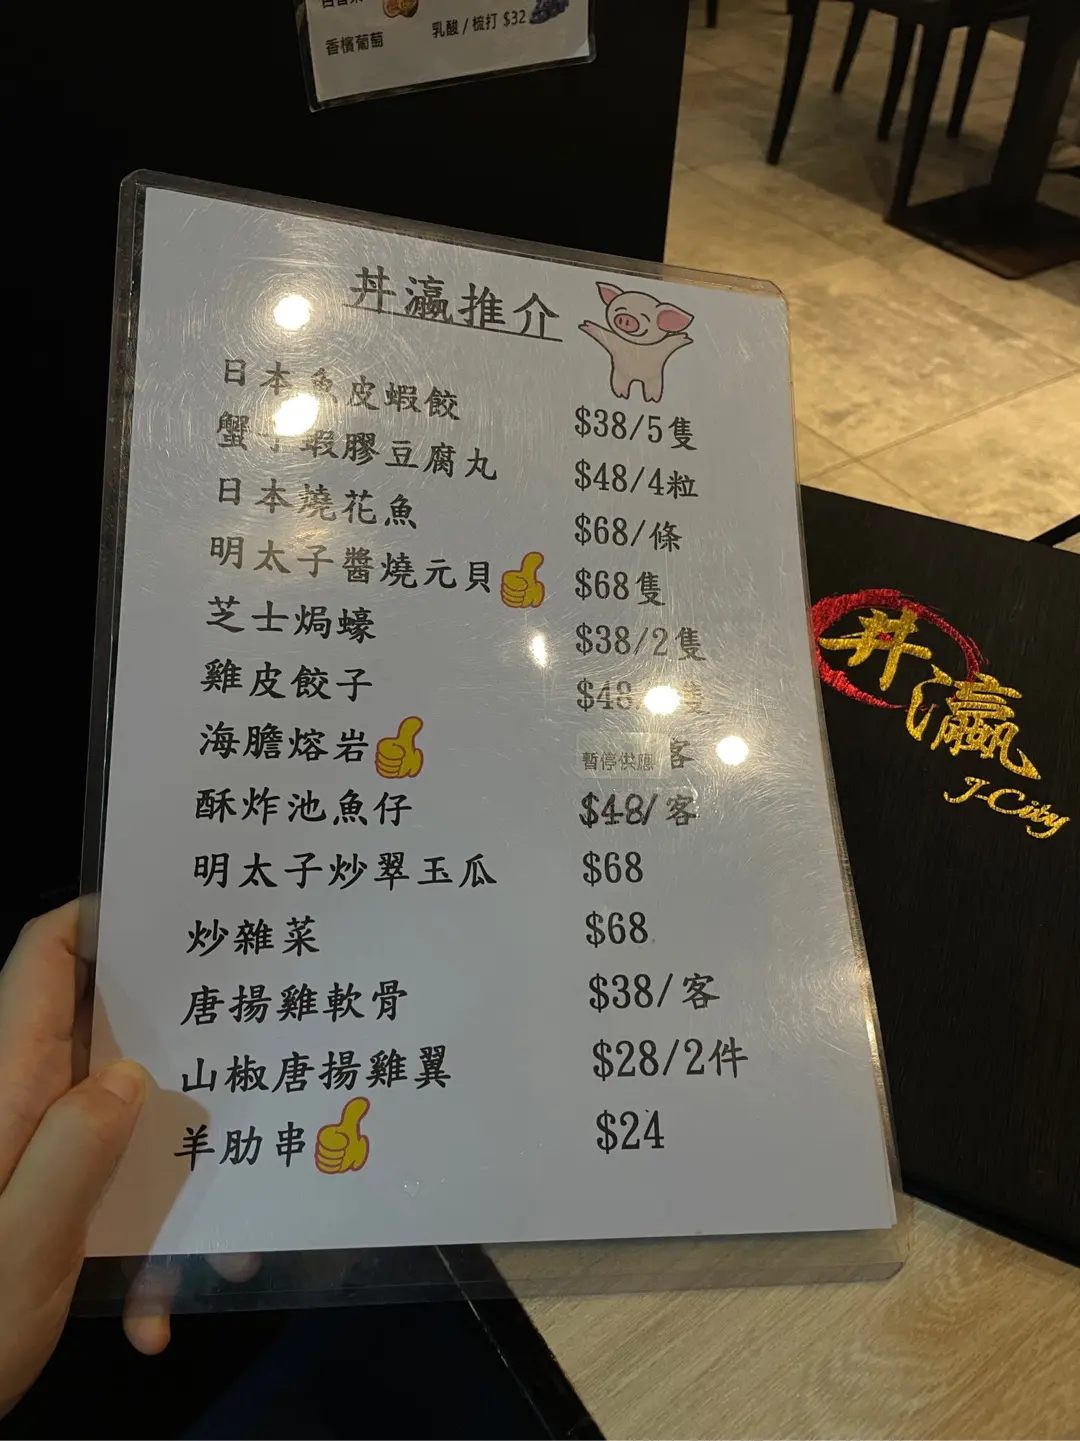 香檳葡萄
乳酸 / 梳打 $32
丼瀛推介
日本魚皮蝦餃 $38/5隻
蟹子蝦膠豆腐丸 $48/4粒
日本燒花魚 $68/條
明太子醬燒元貝 $68隻
芝士焗蠔 $38/2隻
雞皮餃子 $48/隻
海膽熔岩 暫停供應 客
酥炸池魚仔 $48/客
明太子炒翠玉瓜 $68
炒雜菜 $68
唐揚雞軟骨 $38/客
山椒唐揚雞翼 $28/2件
羊肋串 $24
丼瀛
J-City